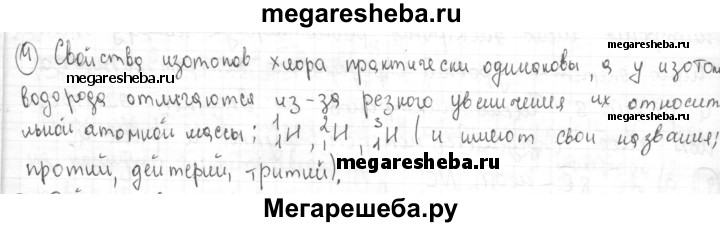 megaresheba.ru
④ Свойства изотопов хлора практически одинаковы, а у изотоп
megaresheba.ru
megaresheba.ru
водорода отличаются из-за резкого увеличения их относит
льной атомной массы: ¹₁H, ²₁H, ³₁H (и имеют свои названия;
протий, дейтерий, тритий).
megaresheba.ru
Мегарешеба.ру